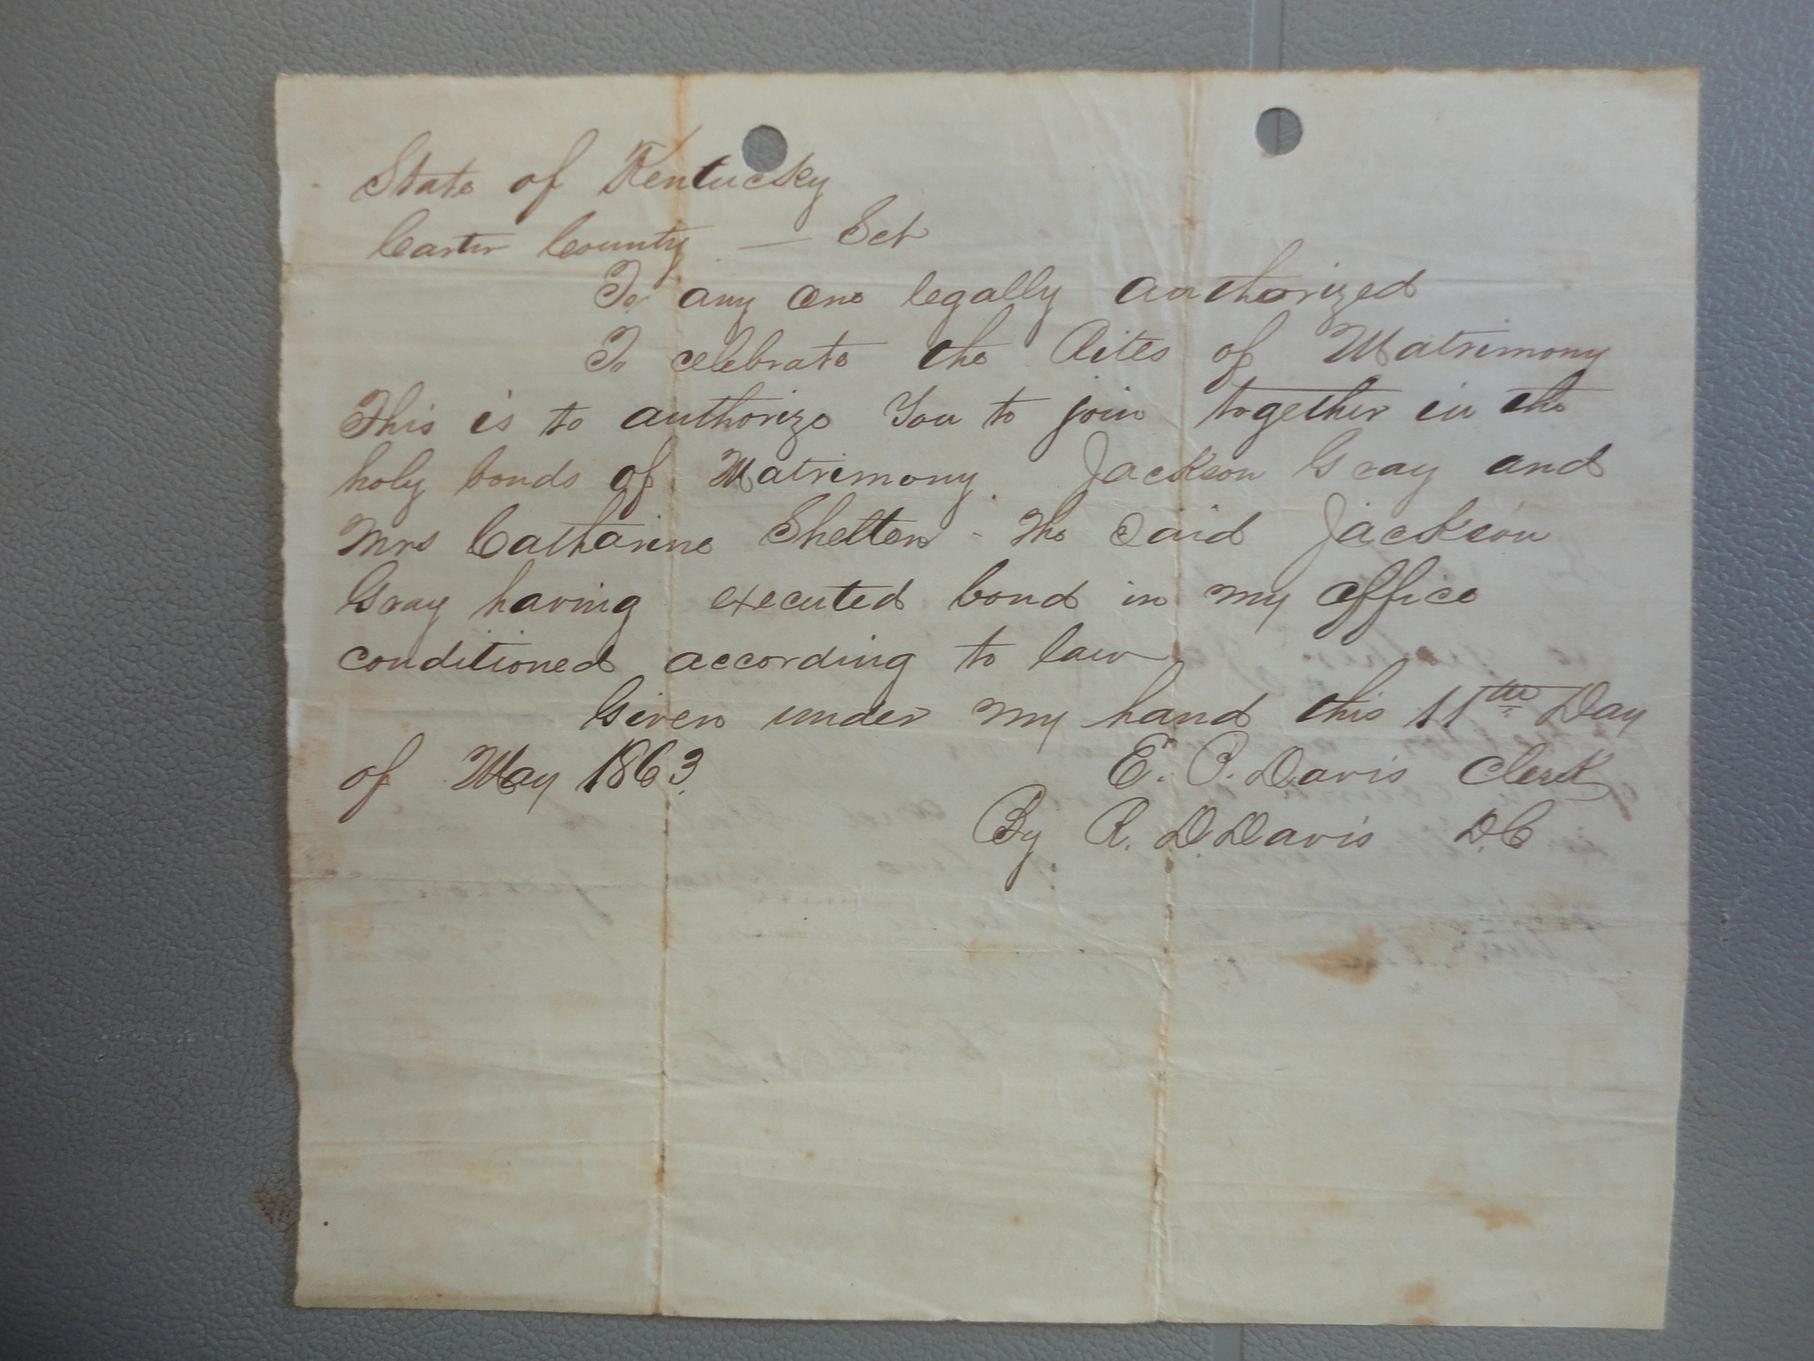 State of Kentucky
Carter County — Sct
To any one legally authorized
To celebrate the Rites of Matrimony
This is to authorize You to join together in the
holy bonds of Matrimony. Jackson Gray and
Mrs Catharine Shelton - The Said Jackson
Gray having executed bond in my office
conditioned according to law
Given under my hand this 11th Day
of May 1863. E. P. Davis Clerk
By R. D. Davis D.C